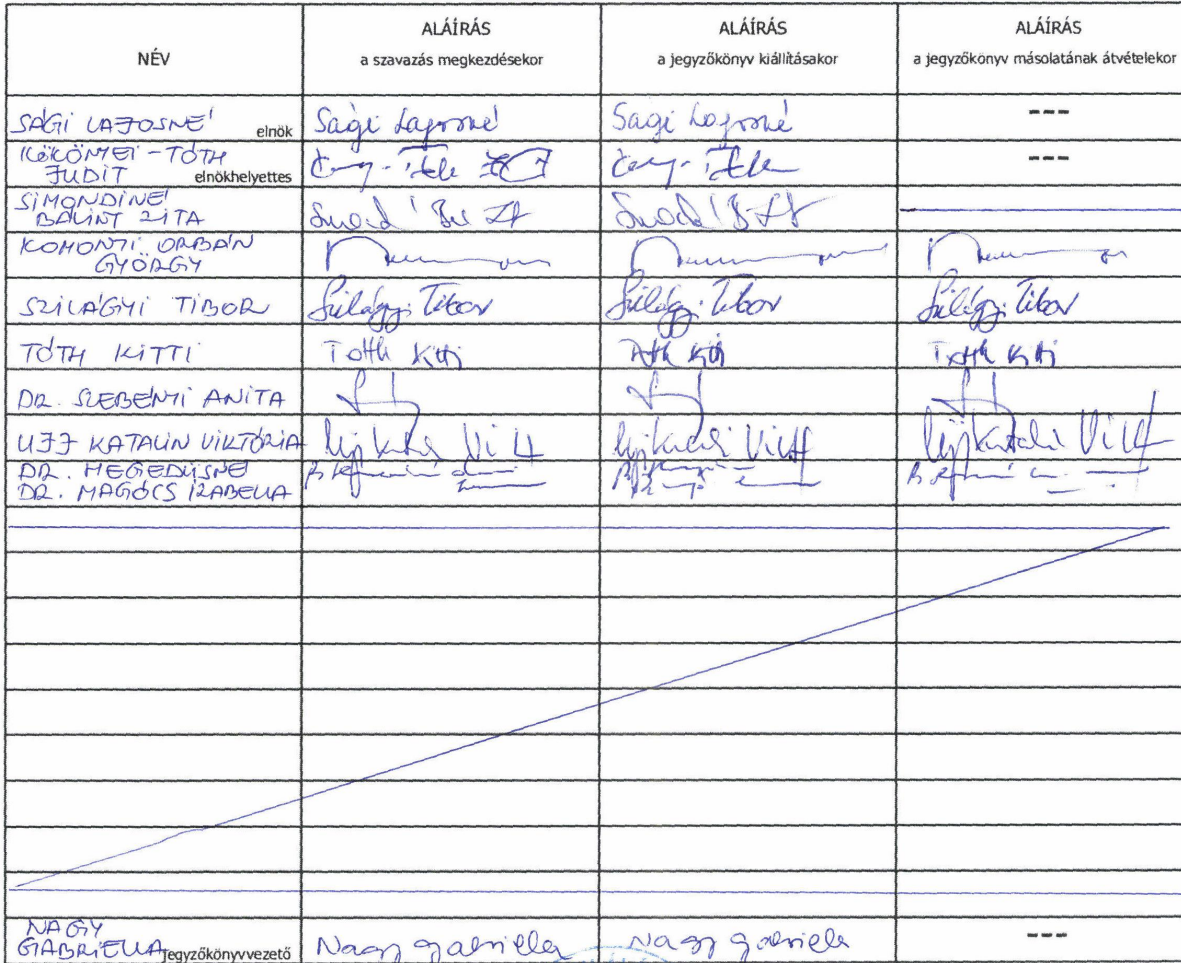 NÉV
ALÁÍRÁS
a szavazás megkezdésekor
ALÁÍRÁS
a jegyzőkönyv kiállításakor
ALÁÍRÁS
a jegyzőkönyv másolatának átvételekor
SÁGI LAJOSNÉ elnök Sági Lajosné Sági Lajosné ---
KÖKÖNYEI-TÓTH
JUDIT elnökhelyettes ---
SIMONDINÉ
BÁLINT ZITA
KOMONYI ORBÁN
GYÖRGY
SZILÁGYI TIBOR Szilágyi Tibor Szilágyi Tibor Szilágyi Tibor
TÓTH KITTI Tóth Kitti Tóth Kitti Tóth Kitti
DR. SZEBÉNYI ANITA
UJJ KATALIN VIKTÓRIA
DR. HEGEDÜSNÉ
DR. MAGÓCS IZABELLA
NAGY
GABRIELLA jegyzőkönyvvezető Nagy Gabriella Nagy Gabriella ---